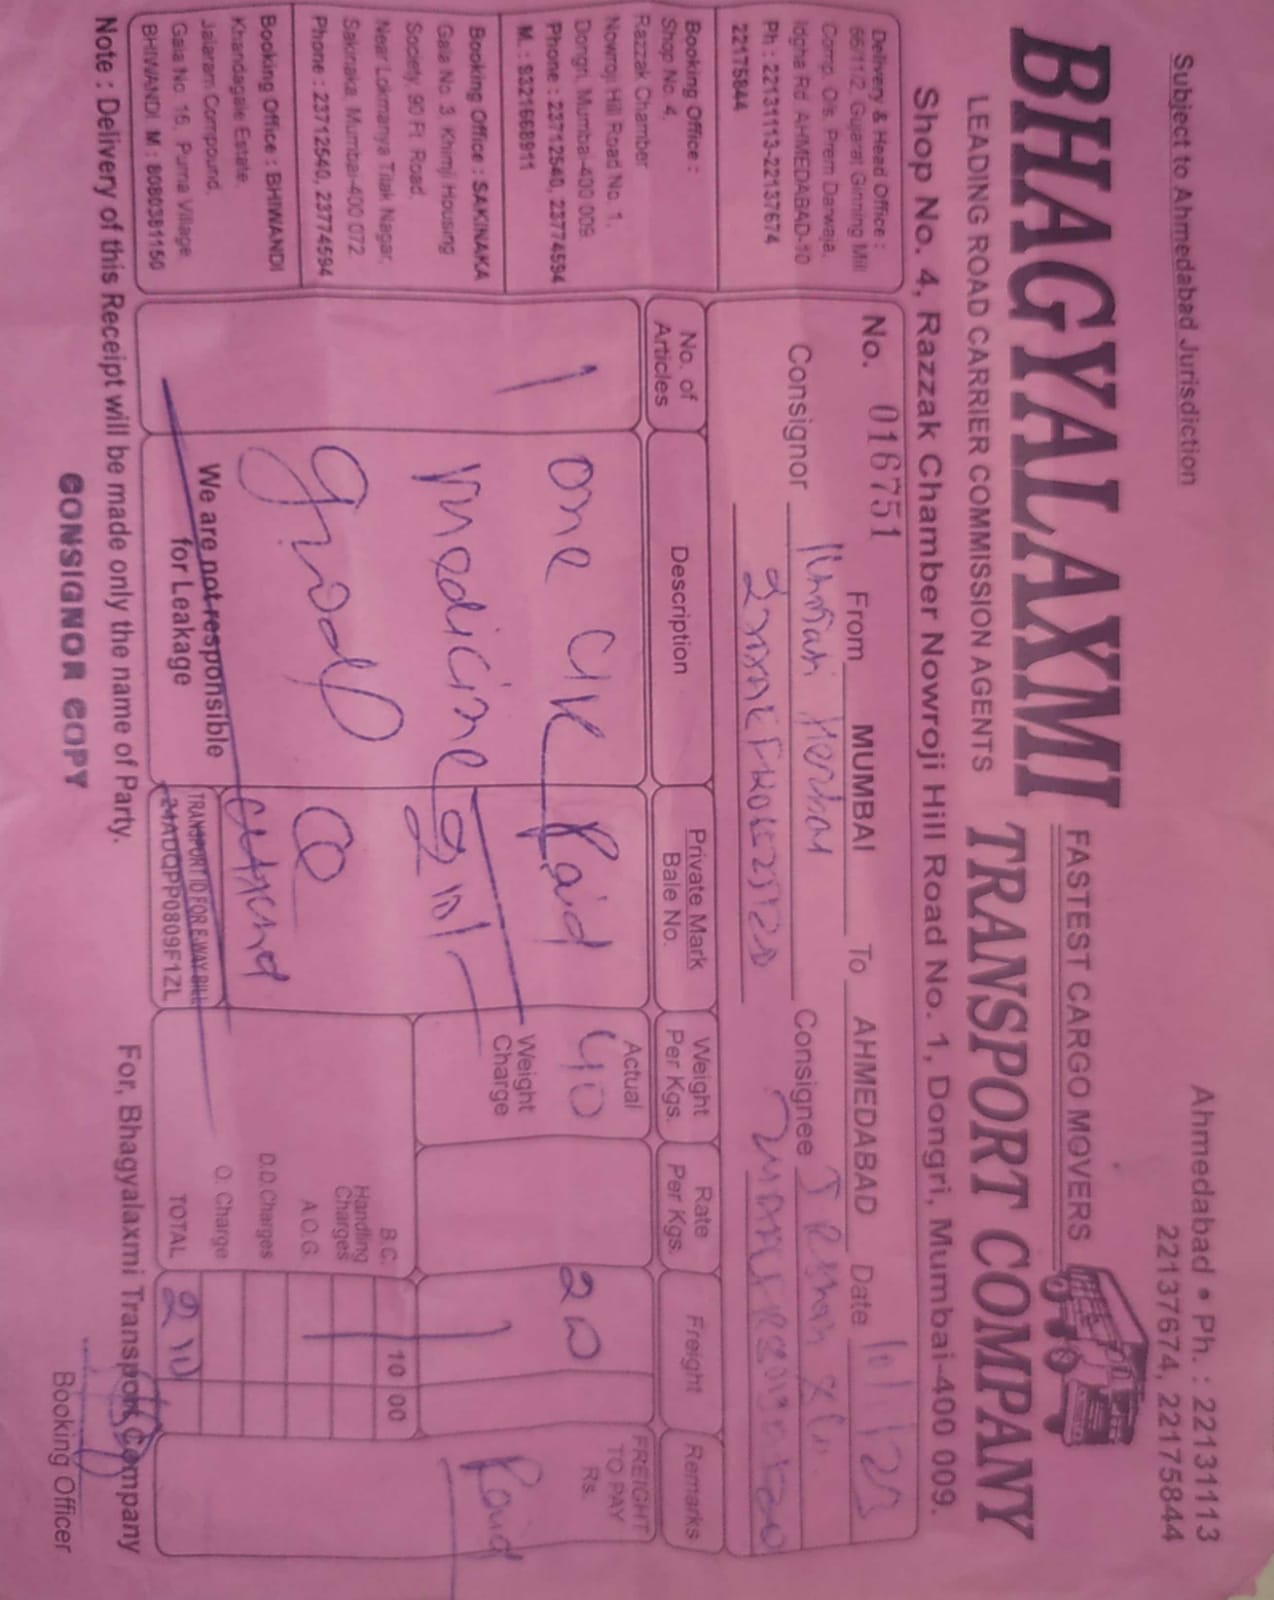 Subject to Ahmedabad Jurisdiction
Ahmedabad • Ph. : 22131113
22137674, 22175844
BHAGYALAXMI
FASTEST CARGO MOVERS
TRANSPORT COMPANY
LEADING ROAD CARRIER COMMISSION AGENTS
Shop No. 4, Razzak Chamber Nowroji Hill Road No. 1, Dongri, Mumbai-400 009.
Delivery & Head Office :
66/11/2, Gujarat Ginning Mill
Comp. O/s. Prem Darwaja,
Idgha Rd. AHMEDABAD-10
Ph : 22131113-22137674
22175844
Booking Office :
Shop No. 4,
Razzak Chamber
Nowroji Hill Road No. 1,
Dongri, Mumbai-400 009.
Phone : 23712540, 23774594
M. : 9321668911
Booking Office : SAKINAKA
Gala No. 3, Khimji Housing
Society, 90 Ft. Road,
Near Lokmanya Tilak Nagar,
Sakinaka, Mumbai-400 072.
Phone : 23712540, 23774594
Booking Office : BHIWANDI
Khandagale Estate,
Jalaram Compound,
Gala No. 15, Purna Village
BHIWANDI. M : 8080381150
No. 016751 From MUMBAI To AHMEDABAD Date 10/1/23
Consignor
Consignee
No. of Articles
Description
Private Mark
Bale No.
Weight Per Kgs.
Rate Per Kgs.
Freight
Remarks
1
one
medicine
good
Paid
Actual
40
Weight Charge
200
FREIGHT TO PAY Rs.
Paid
B.C. 10 00
Handling Charges
A.O.G.
D.D.Charges
O. Charge
TOTAL 210
We are not responsible
for Leakage
TRANSPORT ID FOR E-WAY BILL
24ADQPP0809F1ZL
Note : Delivery of this Receipt will be made only the name of Party.
For, Bhagyalaxmi Transport Company
CONSIGNOR COPY
Booking Officer